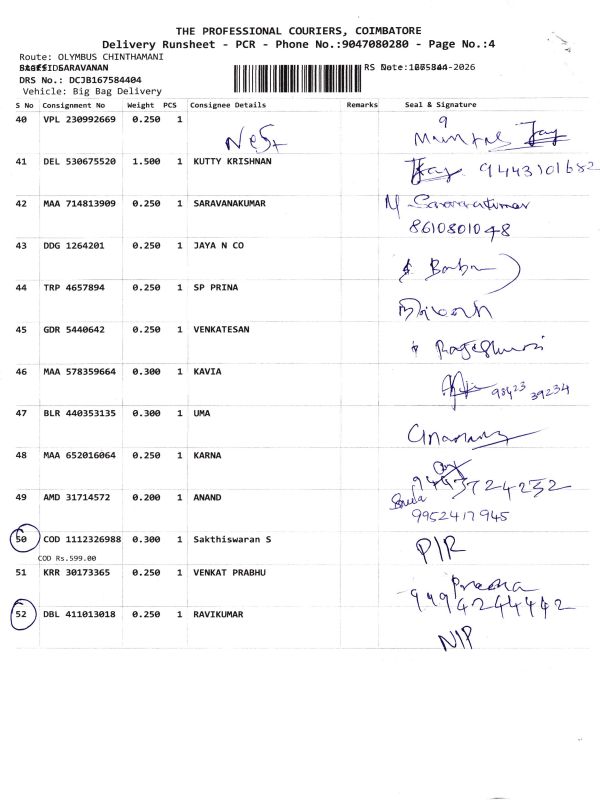 THE PROFESSIONAL COURIERS, COIMBATORE
Delivery Runsheet - PCR - Phone No.:9047080280 - Page No.:4
Route: OLYMBUS CHINTHAMANI
SARAVANAN
DRS No.: DCJB167584404
Vehicle: Big Bag Delivery
S No Consignment No Weight PCS Consignee Details Remarks Seal & Signature
40 VPL 230992669 0.250 1 9
41 DEL 530675520 1.500 1 KUTTY KRISHNAN 9443101682
42 MAA 714813909 0.250 1 SARAVANAKUMAR M
8610801048
43 DDG 1264201 0.250 1 JAYA N CO
44 TRP 4657894 0.250 1 SP PRINA
45 GDR 5440642 0.250 1 VENKATESAN
46 MAA 578359664 0.300 1 KAVIA 98423 39234
47 BLR 440353135 0.300 1 UMA
48 MAA 652016064 0.250 1 KARNA
9443724252
49 AMD 31714572 0.200 1 ANAND
9952417945
50 COD 1112326988 0.300 1 Sakthiswaran S P/R
COD Rs.599.00
51 KRR 30173365 0.250 1 VENKAT PRABHU
9494244442
52 DBL 411013018 0.250 1 RAVIKUMAR
N/P